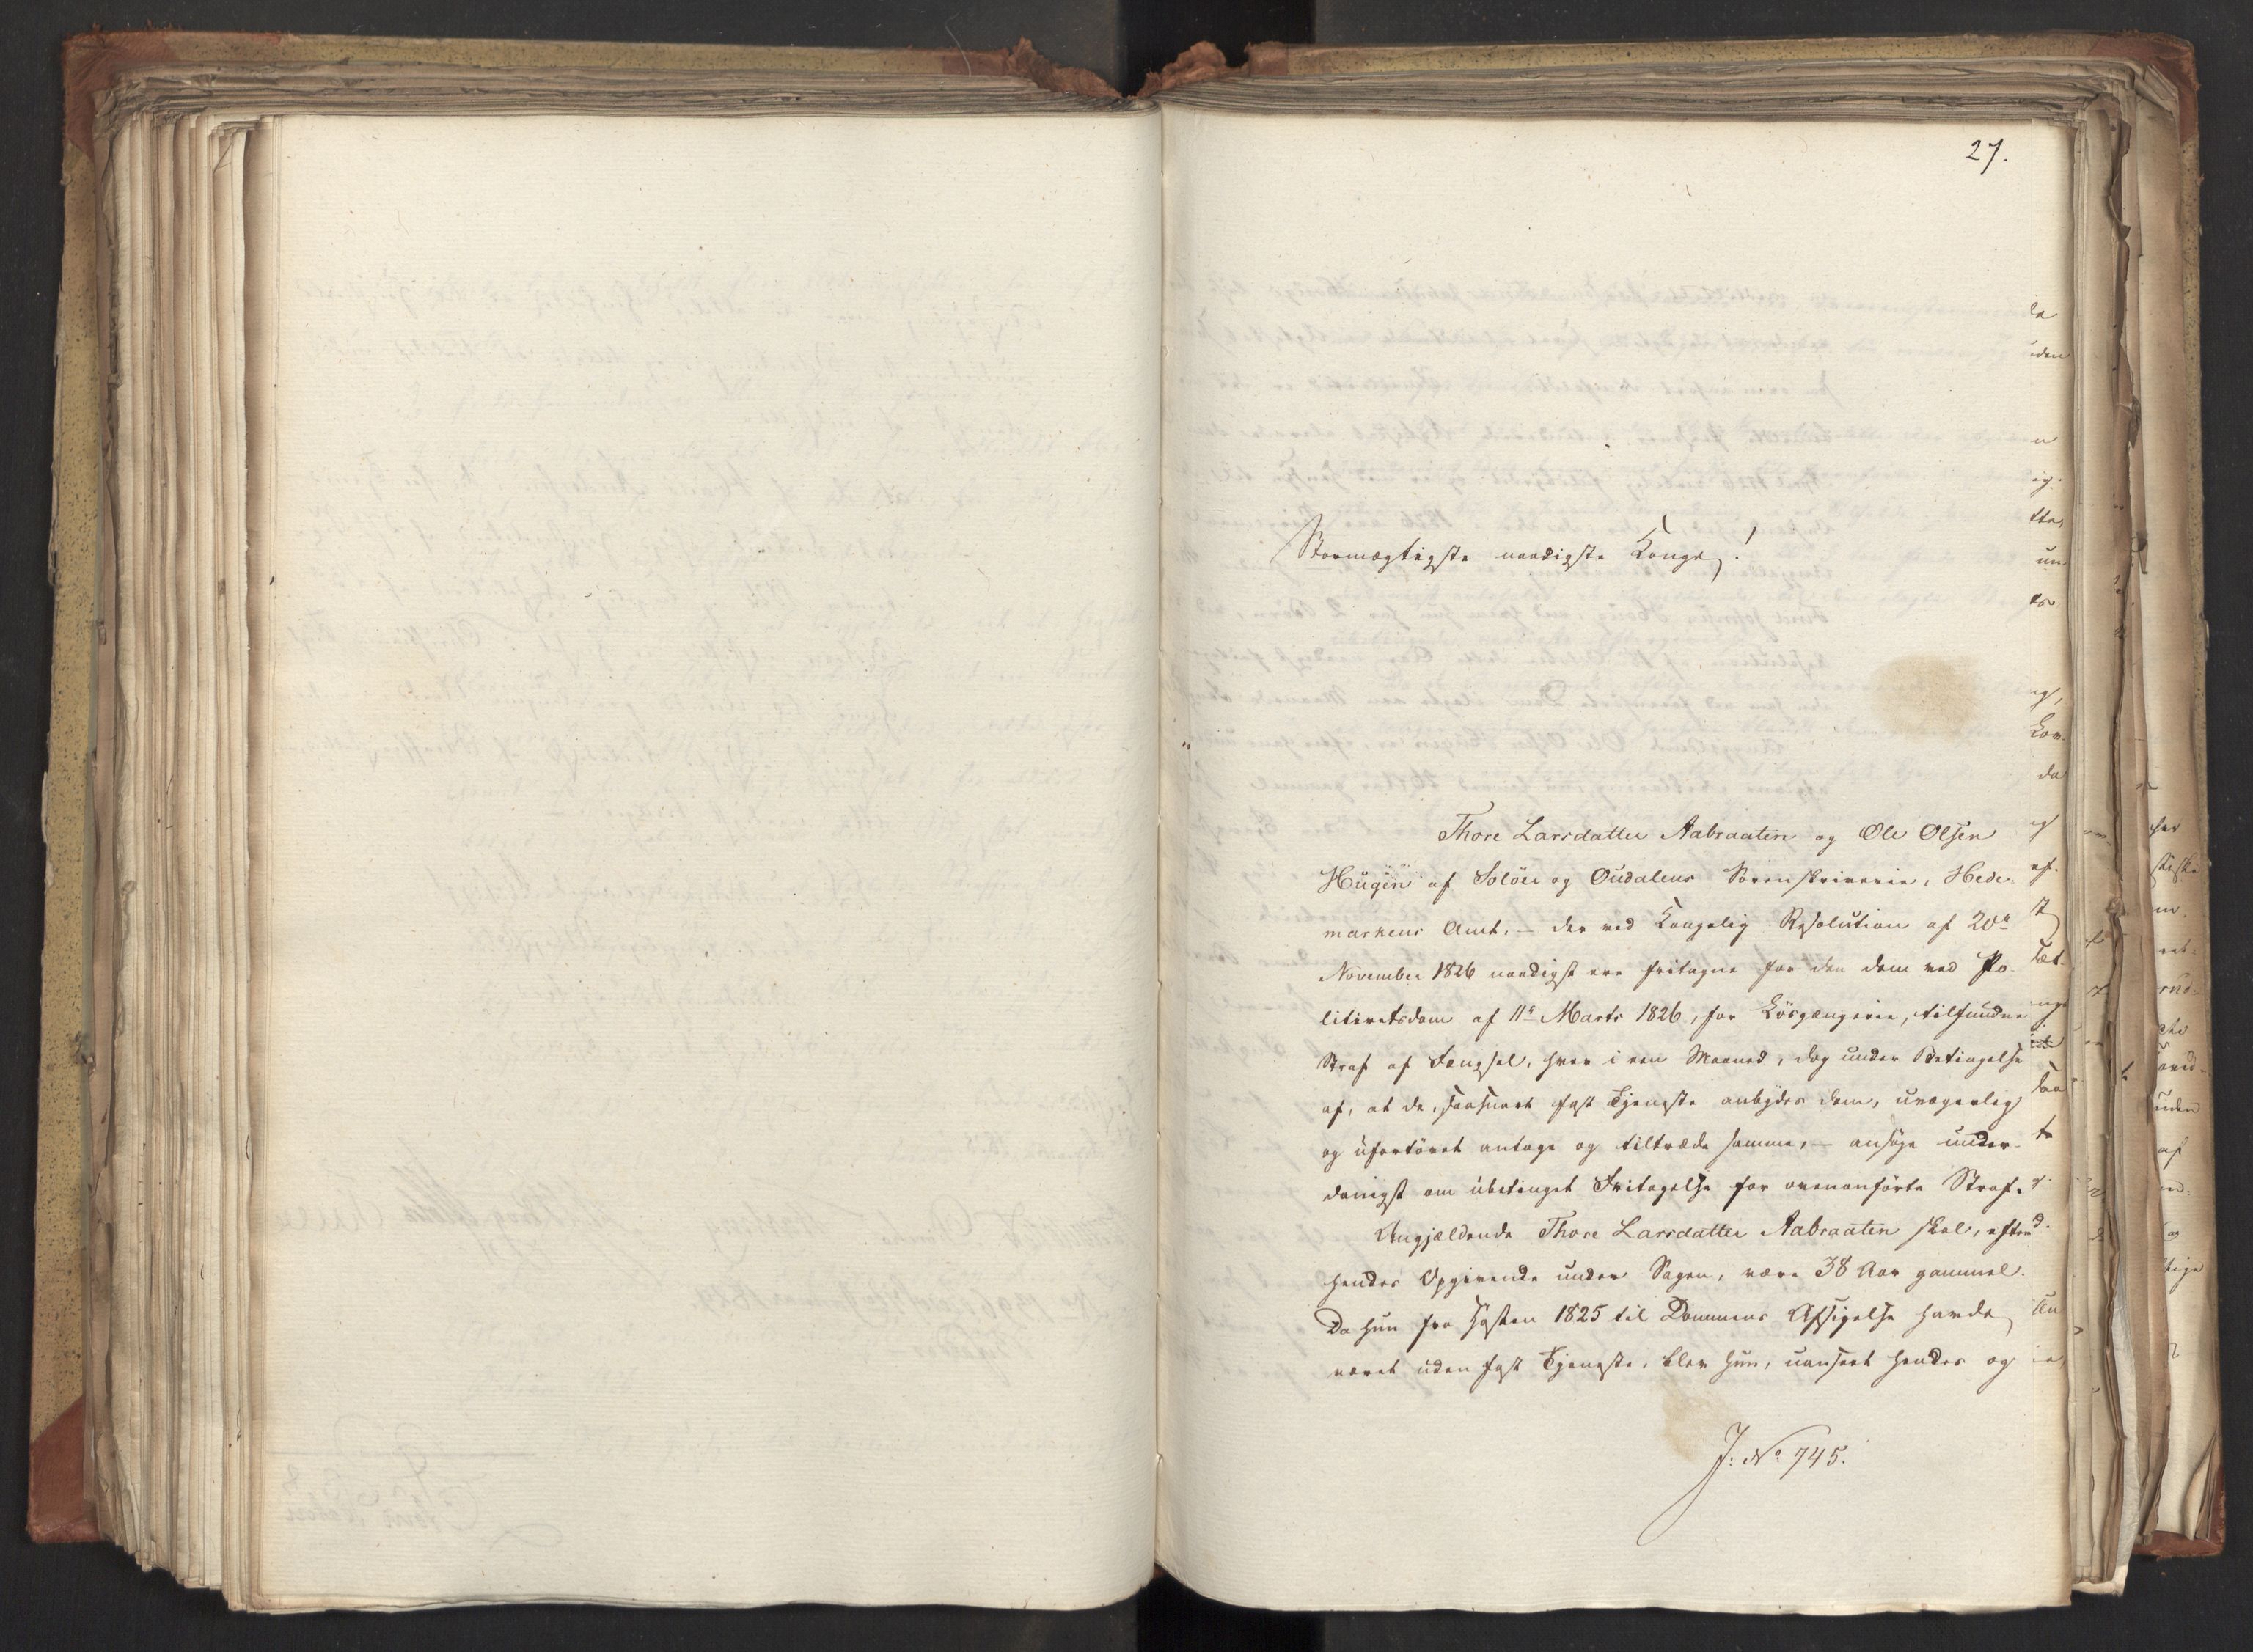 27.
Stormægtigste naadigste Konge!
Thore Larsdatter Aabraaten og Ole Olsen
Hugen af Solöer og Oudalens Sorenskriverie, Hede-
markens Amt, – der ved Kongelig Resolution af 20de
November 1826 naadigst ere fritagne for den dem ved Po-
litiretsdom af 11te Marts 1826, for Lösgængerie, tilfundne
Straf af Fængsel, hver i een Maaned, dog under Betingelse
af, at de, saasnart fast Tjeneste anbydes dem, uvægerlig
og ufortövet antage og tiltræde samme, – ansöge under-
danigst om übetinget Fritagelse for ovenanförte Straf.
Angjældende Thore Larsdatter Aabraaten skal, efter
hendes Opgivende under Sagen, være 38 Aar gammel.
Da hun fra Hösten 1825 til Dommens Afsigelse havde
været uden fast Tjeneste, blev hun, uanseet hendes og
J: No 745.